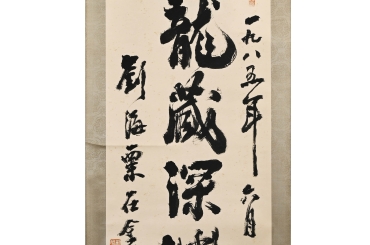 一九八五年六月
龍藏深
劉海粟在